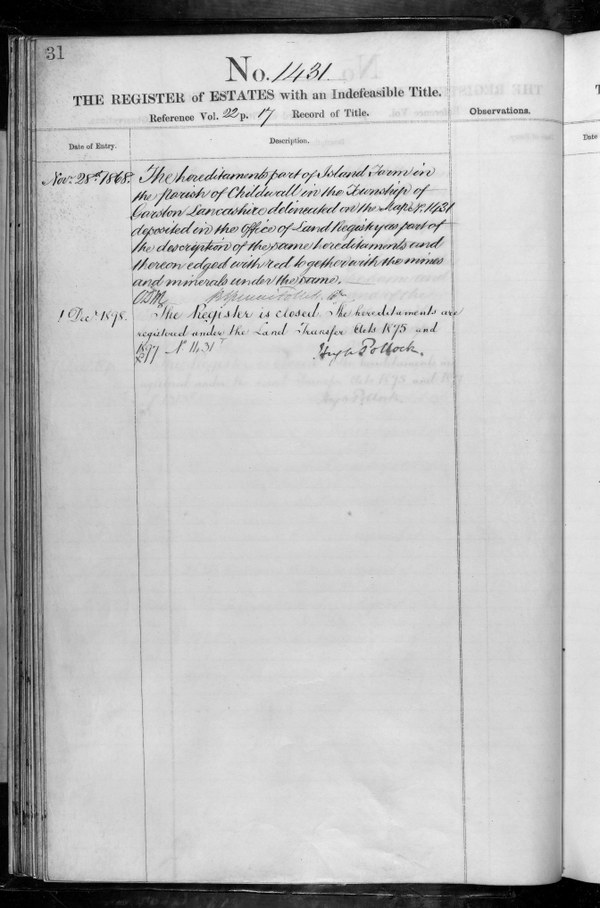 31
No. 1431.
THE REGISTER of ESTATES with an Indefeasible Title.
Reference Vol. 22 p. 17 Record of Title.
Observations.
Date of Entry.
Description.
Date
Novr. 28th. 1868.
The hereditaments part of Island Farm in
the Parish of Childwall in the Township of
Garston Lancashire delineated on the Map No. 1431
deposited in the Office of Land Registry as part of
the description of the same hereditaments and
thereon edged with red together with the mines
and minerals under the same.
1 Decr. 1898.
The Register is closed. The hereditaments are
registered under the Land Transfer Acts 1875 and
1897 No 1431
Hugh Pollock.